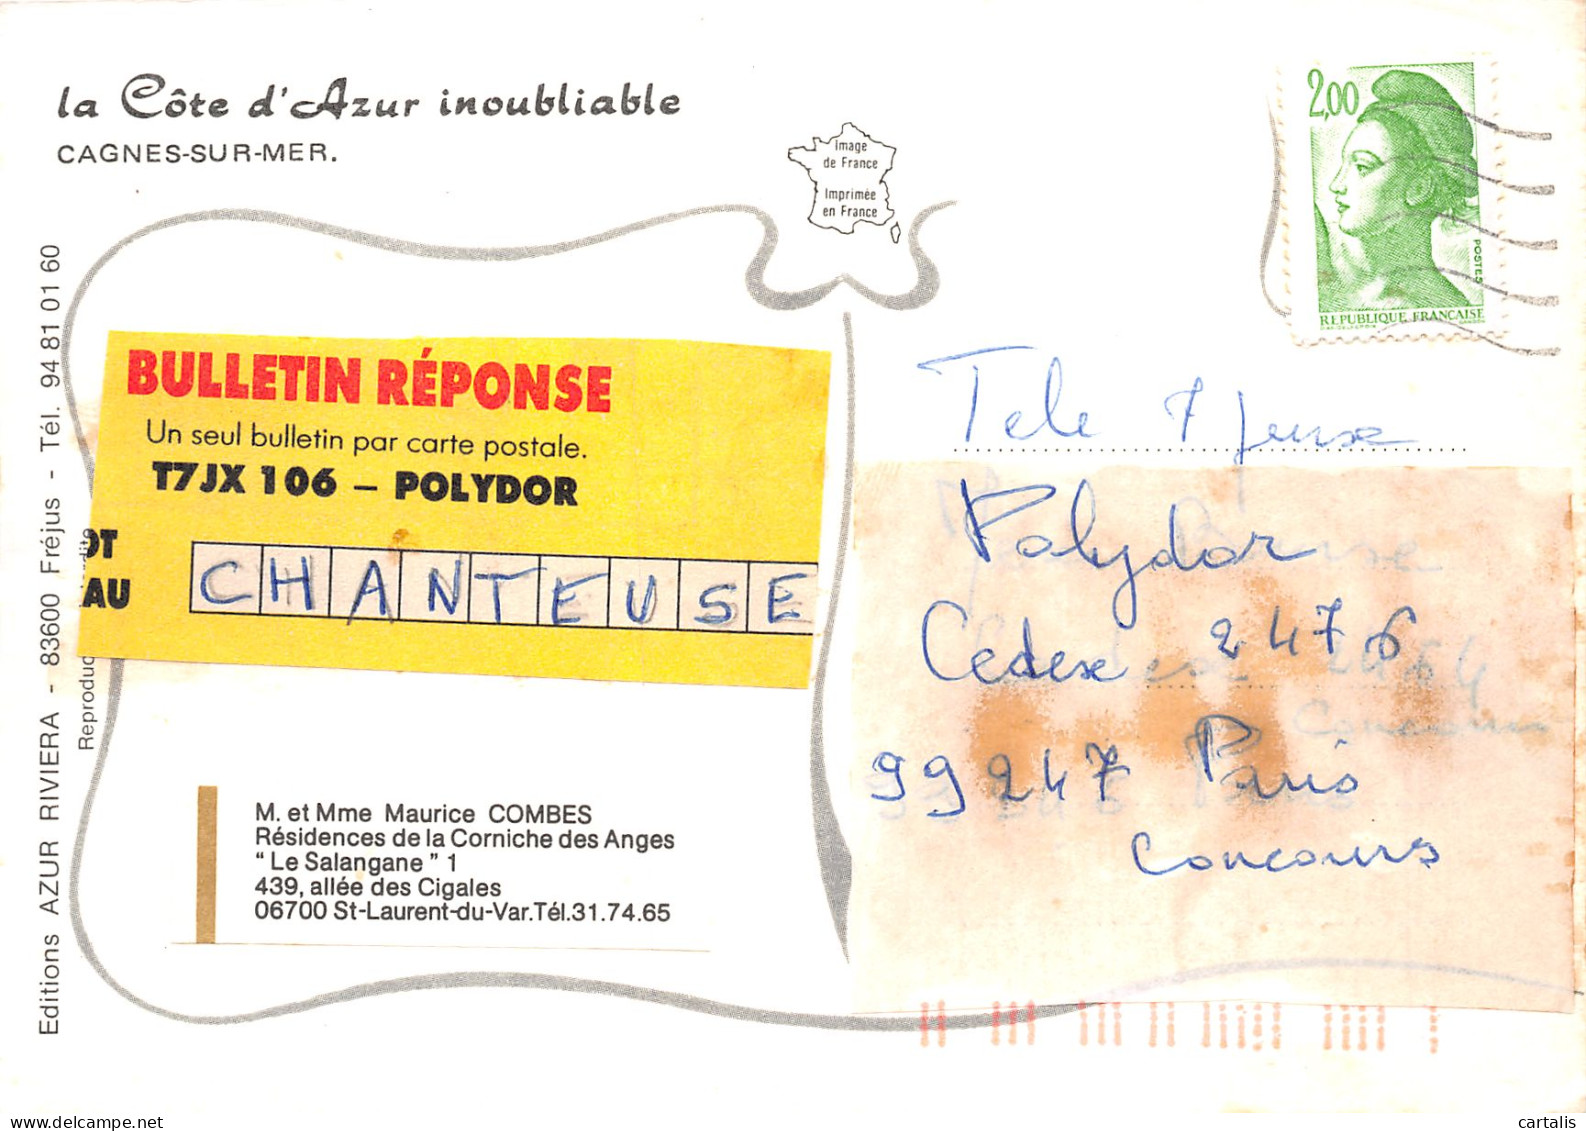 la Côte d'Azur inoubliable
CAGNES-SUR-MER.
Image
de France
Imprimée
en France
2,00
POSTES
REPUBLIQUE FRANÇAISE
Editions AZUR RIVIERA - 83600 Fréjus - Tél. 94 81 01 60
Reproduc
BULLETIN RÉPONSE
Un seul bulletin par carte postale.
T7JX 106 – POLYDOR
OT
AU
CHANTEUSE
M. et Mme Maurice COMBES
Résidences de la Corniche des Anges
“ Le Salangane ” 1
439, allée des Cigales
06700 St-Laurent-du-Var.Tél.31.74.65
Tele 7 Jeux
Polydor
Cedex 2476
99247 Paris
Concours
cartalis